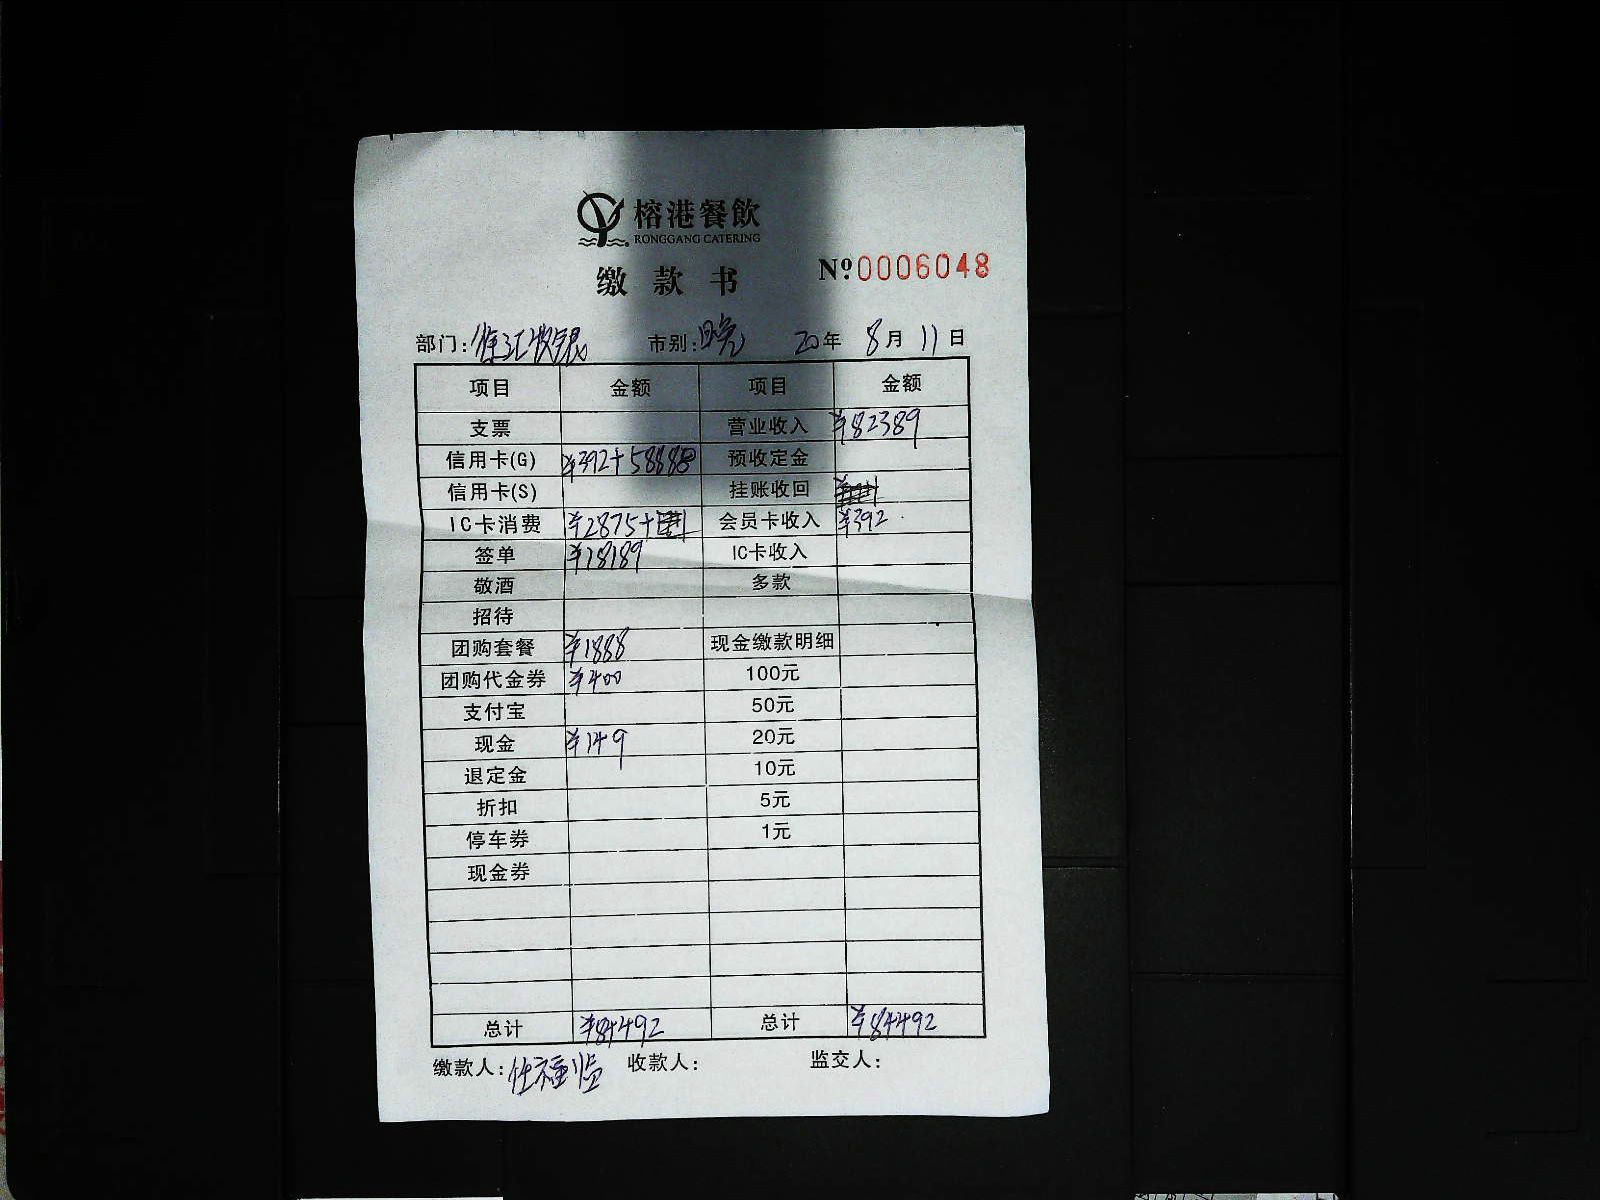 榕港餐飲
RONGGANG CATERING
缴款书 Nº0006048
部门:徐汇收银 市别:晚 20年8月11日
项目 金额 项目 金额
支票 营业收入 ¥82389
信用卡(G) ¥392+ 预收定金
信用卡(S) 挂账收回
IC卡消费 ¥2875+ 会员卡收入 ¥392
签单 ¥18189 IC卡收入
敬酒 多款
招待
团购套餐 ¥1888 现金缴款明细
团购代金券 ¥400 100元
支付宝 50元
现金 ¥149 20元
退定金 10元
折扣 5元
停车券 1元
现金券
总计 ¥84492 总计 ¥84492
缴款人:任福临 收款人: 监交人: